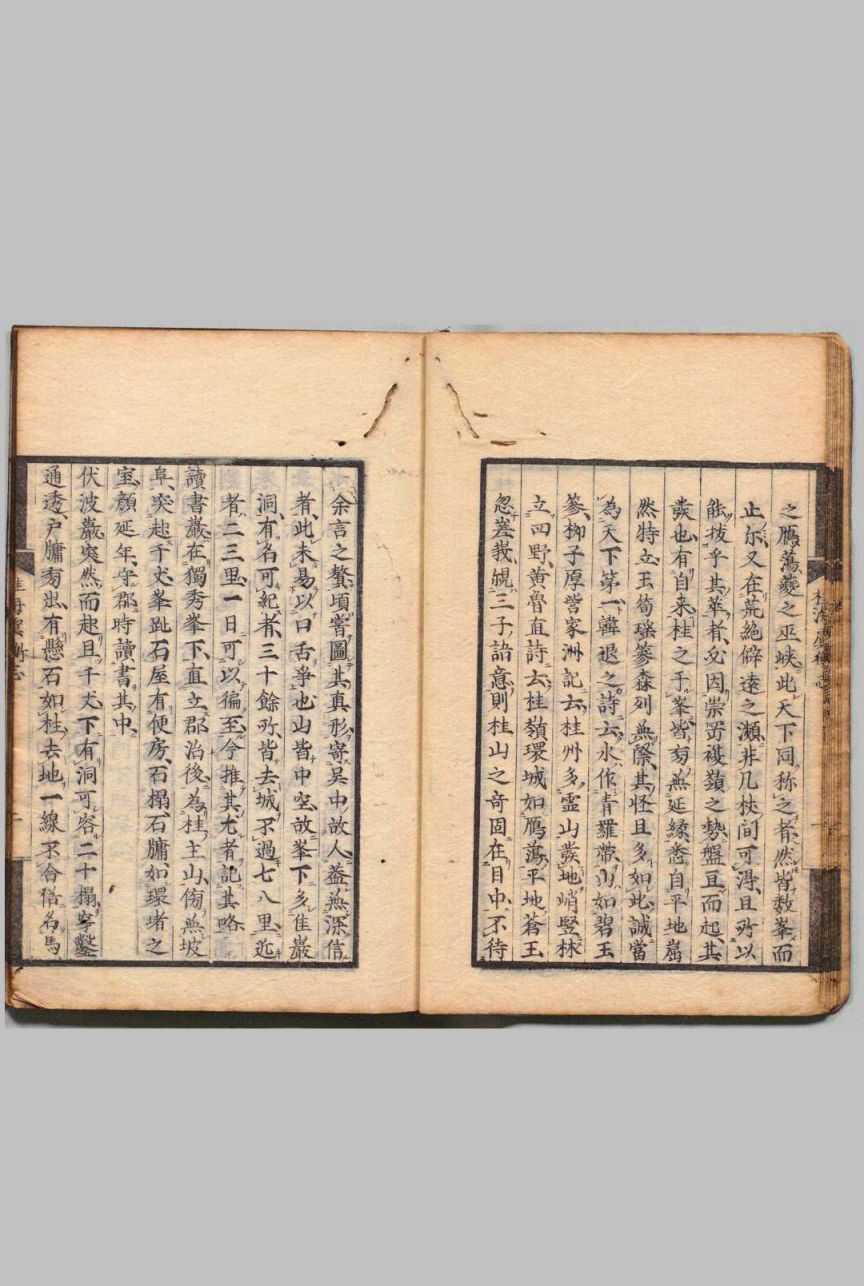 之鴈蕩、夔之巫峽、此天下同称之者、然皆数峯而
止尓、又在荒絶僻遠之瀕、非几杖間可淂、且所以
能抜乎其萃者、必因崇岡複嶺之勢、盤亘而起、其
發也有自来、桂之千峯、皆旁無延縁、悉自平地崛
然特立、玉筍瑶篸、森列無際、其怪且多如此、誠當
為天下第一、韓退之詩云、水作青羅帶、山如碧玉
篸、栁子厚訾家洲記云、桂州多霊山、發地峭竪、林
立四野、黄魯直詩云、桂嶺環城如鴈蕩、平地蒼玉
忽嶒峩、觀三子詥意、則桂山之奇、固在目中、不待
余言之贅、頃嘗圖其真形、寄呉中故人、盖無深信
者、此未易以口舌争也、山皆中空、故峯下多佳巖
洞、有名可紀者、三十餘所、皆去城不過七八里、近
者二三里、一日可以徧至、今推其尤者、記其略
讀書巖、在獨秀峯下、直立郡治後、為桂主山、傍無坡
阜、突起千丈、峯趾石屋有便房、石榻、石牗、如環堵之
室、顔延年守郡時讀書其中、
伏波巖、突然而起、且千丈、下有洞、可容二十榻、穿鑿
通透、戸牗旁出、有懸石如柱、去地一線不合、俗名馬